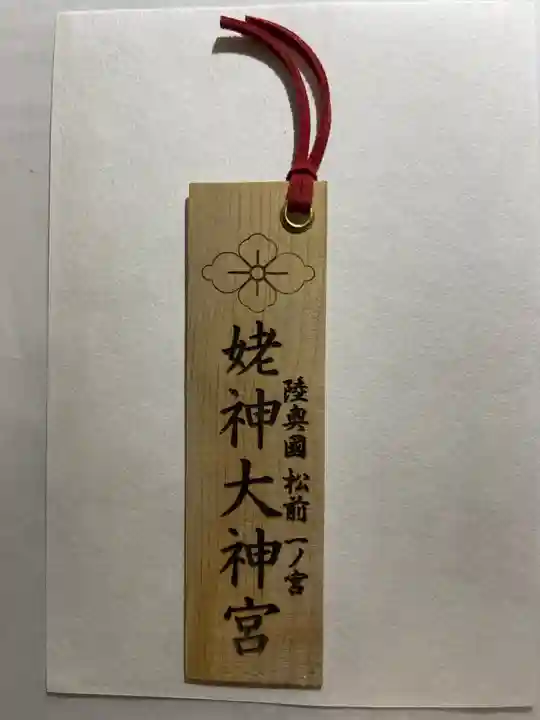 陸奥國 松前 一ノ宮
姥神大神宮